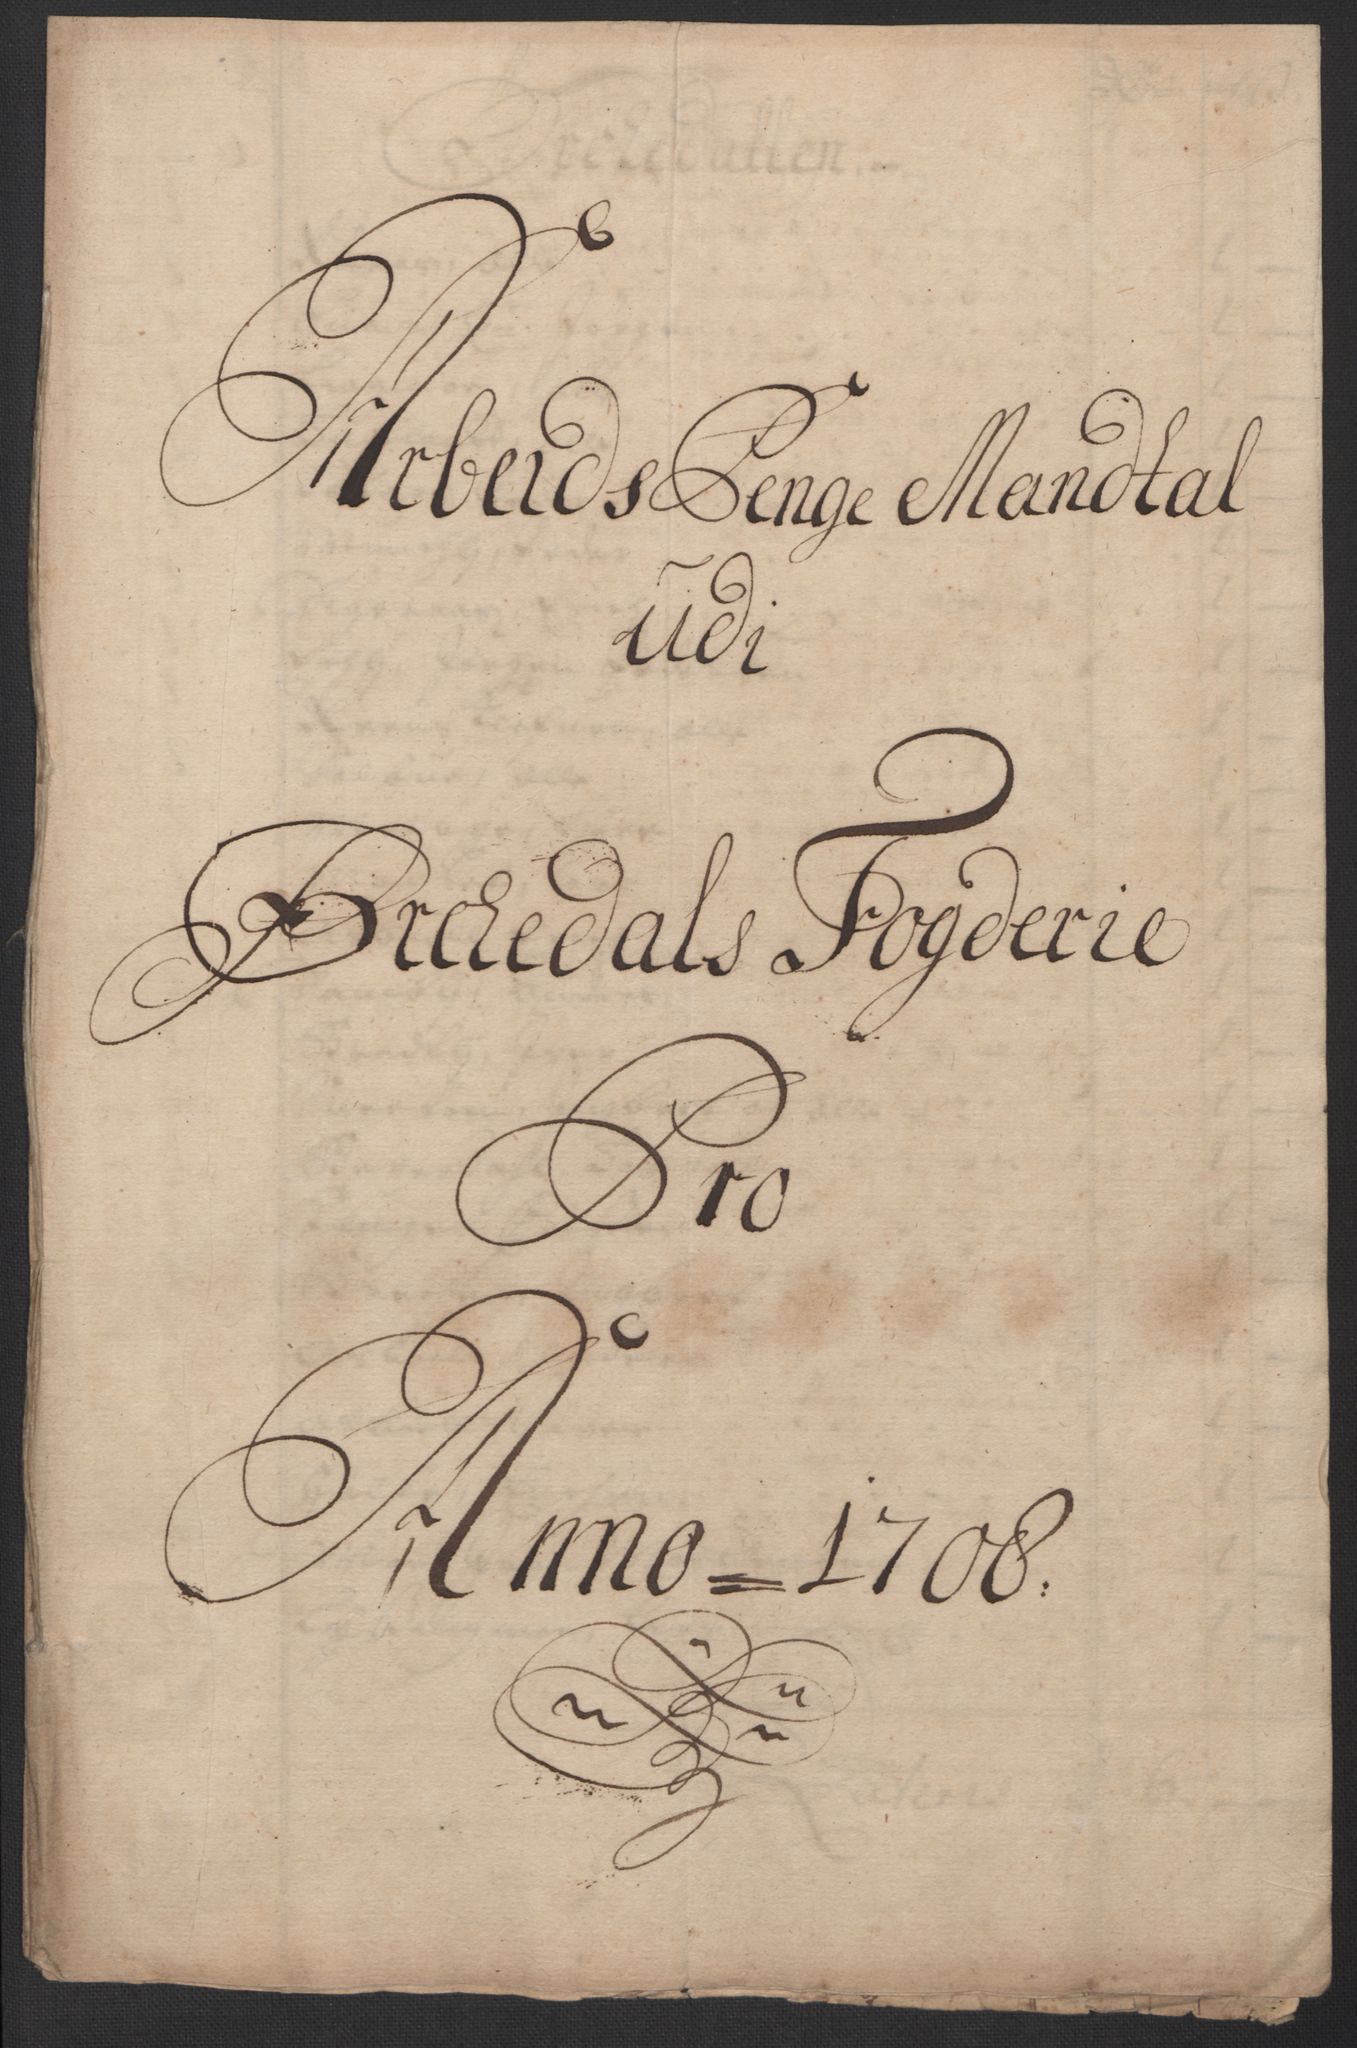 Arbeids Penge Mandtal
ŭdi
Orchedals Fogderie
Pro
Anno = 1708.